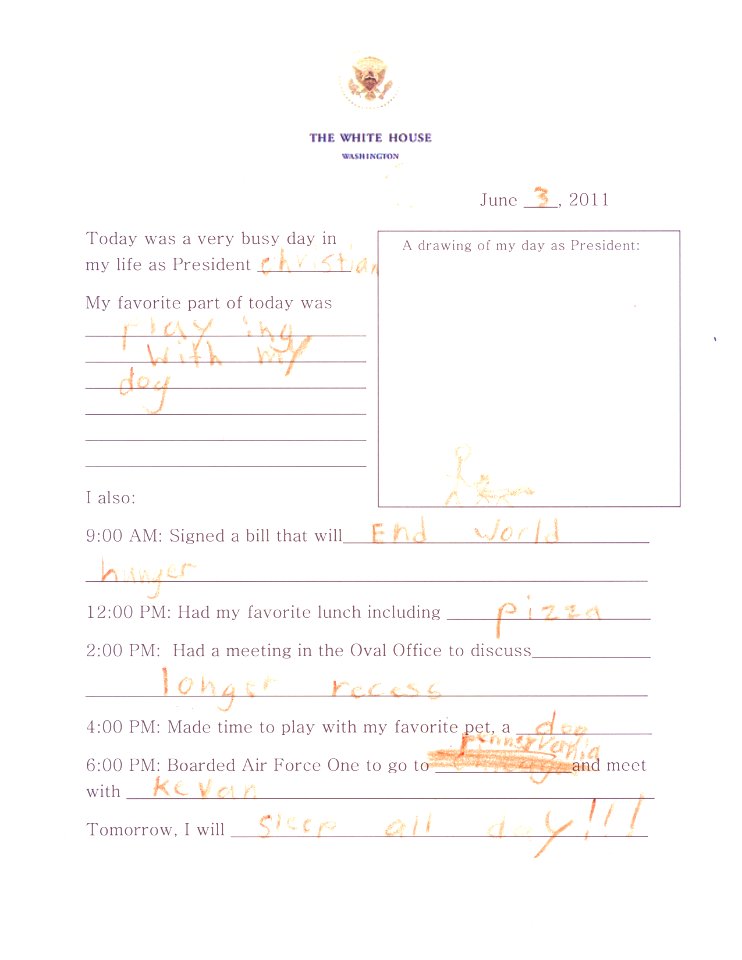 THE WHITE HOUSE
WASHINGTON
June 3, 2011
Today was a very busy day in
my life as President christian
My favorite part of today was
playing
with my
dog
A drawing of my day as President:
I also:
9:00 AM: Signed a bill that will End world
hunger
12:00 PM: Had my favorite lunch including pizza
2:00 PM: Had a meeting in the Oval Office to discuss
longer recess
4:00 PM: Made time to play with my favorite pet, a dog
pennsrvania
6:00 PM: Boarded Air Force One to go to and meet
with Kevan
Tomorrow, I will sleep all day!!!